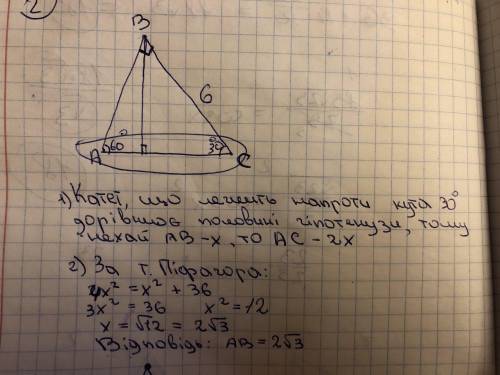 2
B
6
A 60° 30° C
1) Катет, що лежить напроти кута 30°
дорівнює половині гіпотенузи, тому
нехай AB - x, то AC - 2x
2) За т. Піфагора:
4x² = x² + 36
3x² = 36 x² = 12
x = √12 = 2√3
Відповідь: AB = 2√3